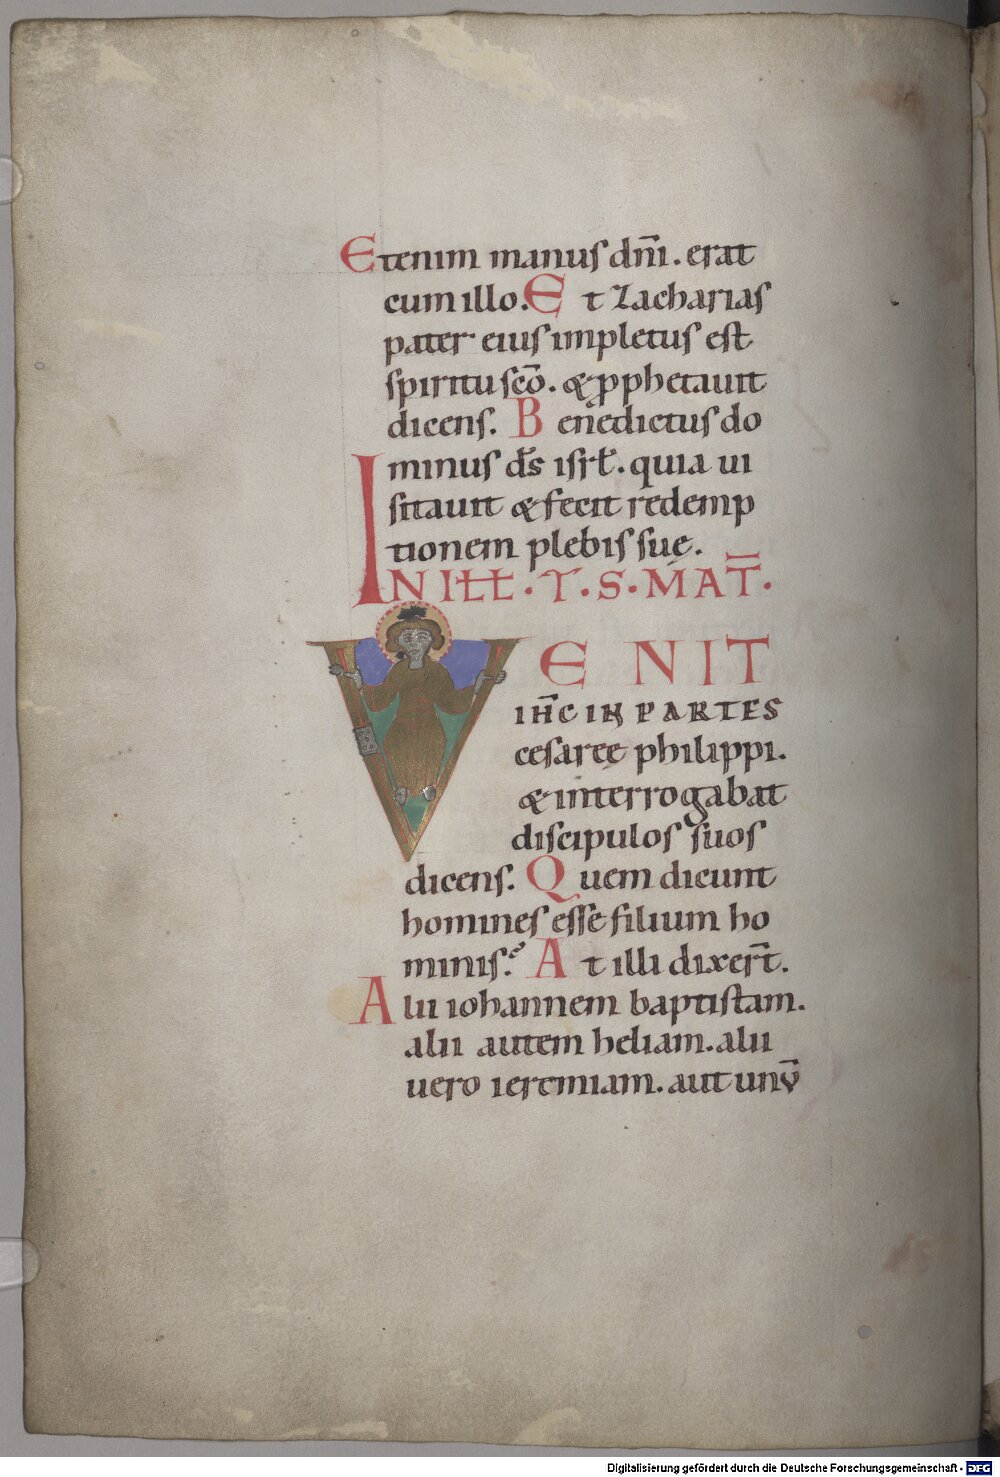 Etenim manus dn̄i. erat
cum illo. Et Zacharias
pater eius impletus est
spiritu sc̄o. & pphetauit
dicens. Benedictus do
minus d̄s isrł. quia ui
sitauit & fecit redemp
tionem plebis suę.
IN ILŁ. T. S. MAT̄.
VENIT
IH̄C IN PARTES
cesareę philippi.
& interrogabat
discipulos suos
dicens. Quem dicunt
homines esse filium ho
minis. At illi dixer̄t.
Alii iohannem baptistam.
alii autem heliam. alii
uero ieremiam. aut unv̄
Digitalisierung gefördert durch die Deutsche Forschungsgemeinschaft - DFG